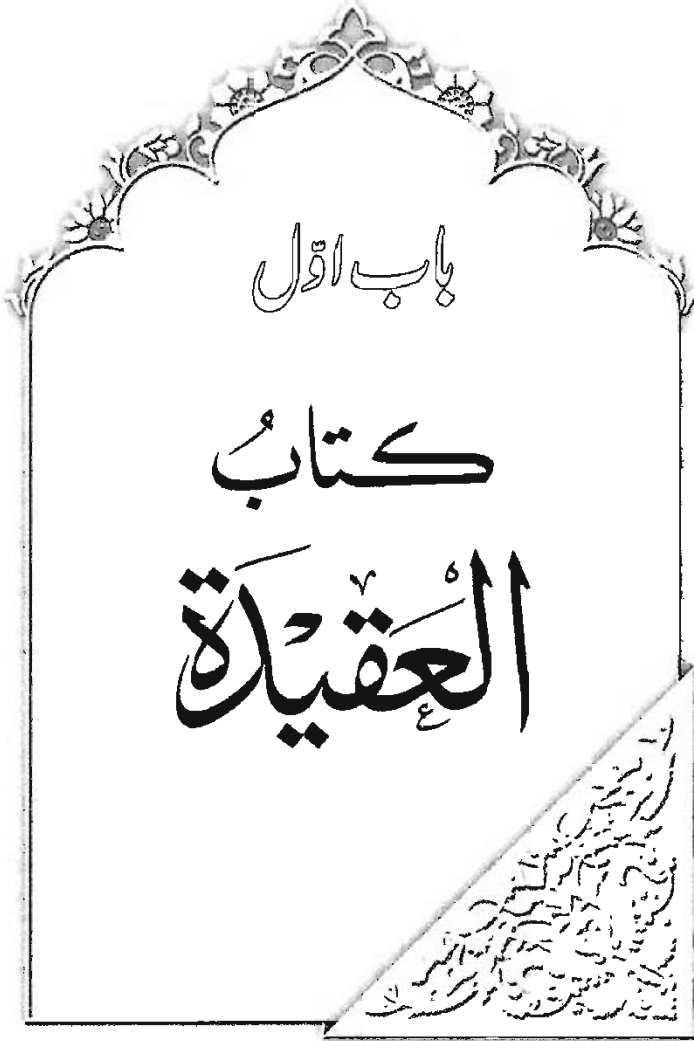 باب اوّل
کتابُ
العَقیْدَة